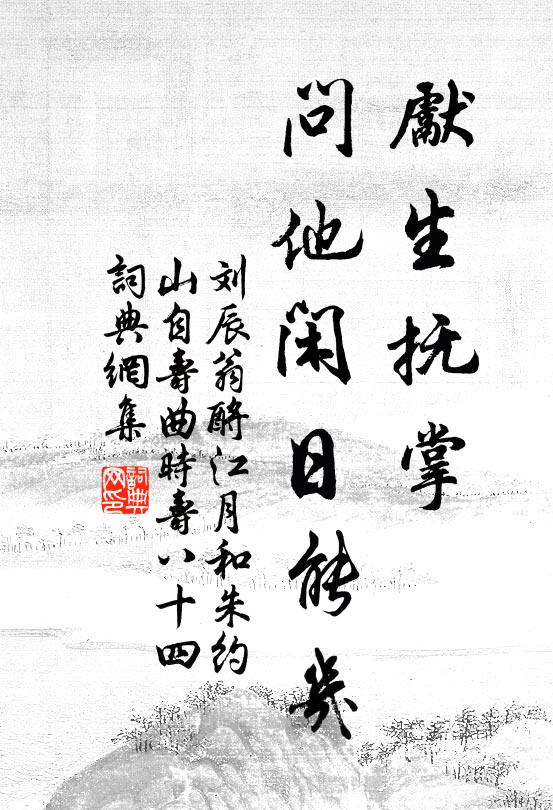 獻生抚掌
問他闲日能幾
刘辰翁酹江月和朱约
山自壽曲時壽八十四
詞典網集
詞典
网印